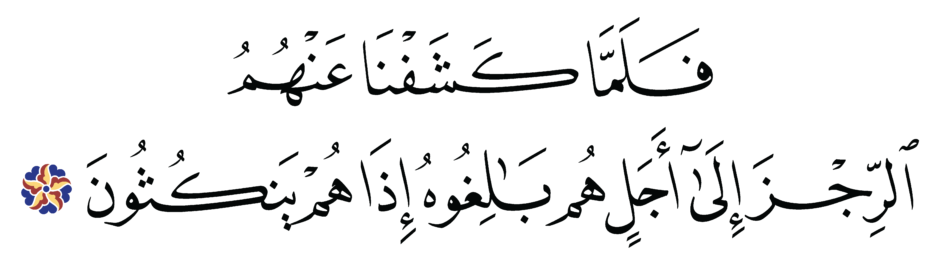 فَلَمَّا كَشَفْنَا عَنْهُمُ
ٱلرِّجْزَ إِلَىٰٓ أَجَلٍ هُم بَـٰلِغُوهُ إِذَا هُمْ يَنكُثُونَ